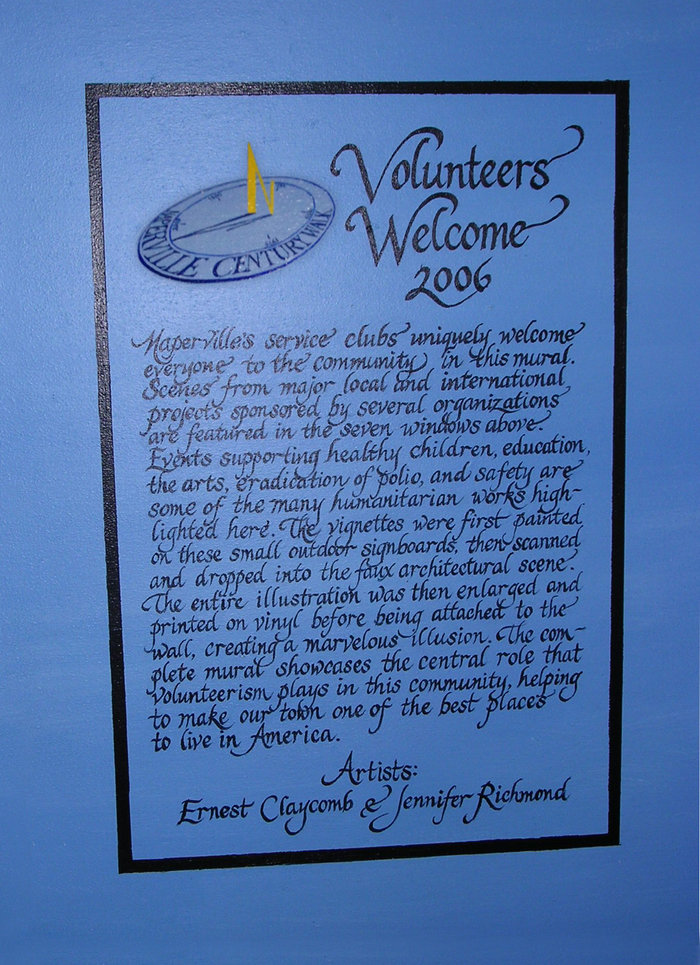 Volunteers
Welcome
2006
NAPERVILLE CENTURY WALK
N
Naperville's service clubs uniquely welcome
everyone to the community in this mural.
Scenes from major local and international
projects sponsored by several organizations
are featured in the seven windows above.
Events supporting healthy children, education,
the arts, eradication of polio, and safety are
some of the many humanitarian works high-
lighted here. The vignettes were first painted
on these small outdoor signboards, then scanned
and dropped into the faux architectural scene.
The entire illustration was then enlarged and
printed on vinyl before being attached to the
wall, creating a marvelous illusion. The com-
plete mural showcases the central role that
volunteerism plays in this community, helping
to make our town one of the best places
to live in America.
Artists:
Ernest Claycomb & Jennifer Richmond